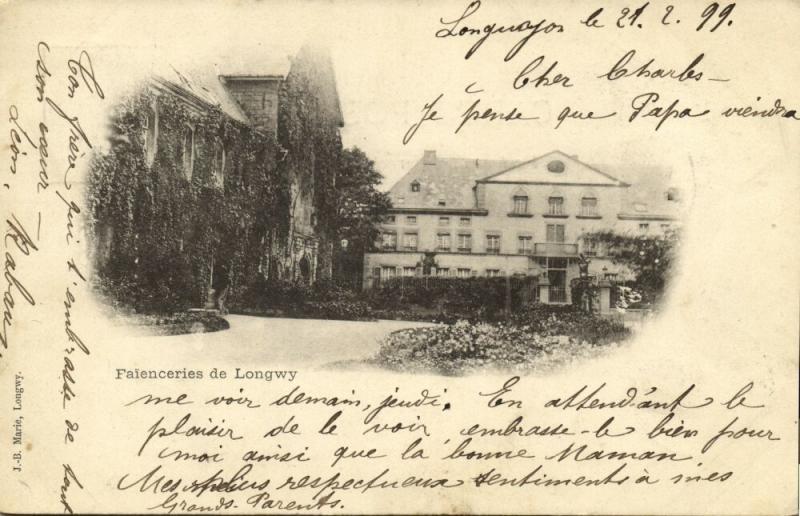 Longuyon le 21. 2. 99.
Cher Charles –
Je pense que Papa viendra
Faïenceries de Longwy
me voir demain, jeudi. En attendant le
plaisir de le voir, embrasse-le bien pour
moi ainsi que la bonne Maman
Mes plus respectueux sentiments à mes
Grands-Parents.
Ton frère qui t'embrasse de tout
son cœur –
Léon.
J.-B. Marie, Longwy.